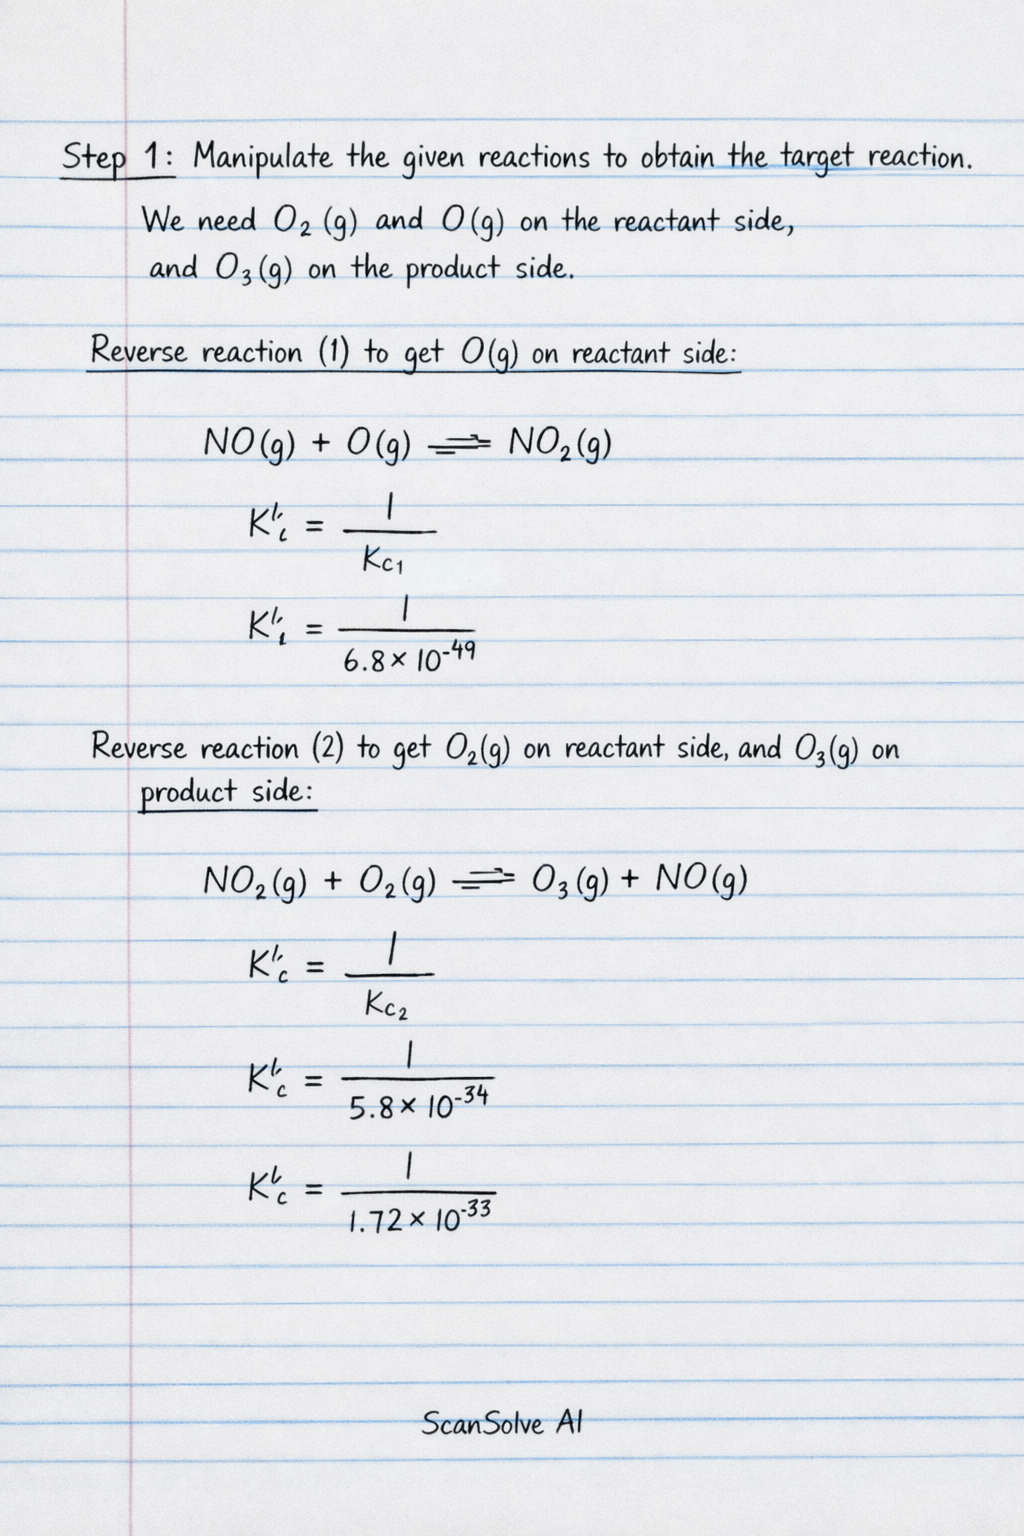 Step 1: Manipulate the given reactions to obtain the target reaction.
We need O₂ (g) and O(g) on the reactant side,
and O₃(g) on the product side.
Reverse reaction (1) to get O(g) on reactant side:
NO(g) + O(g) ⇌ NO₂(g)
=
1
Kc₁
=
1
6.8 × 10⁻⁴⁹
Reverse reaction (2) to get O₂(g) on reactant side, and O₃(g) on
product side:
NO₂(g) + O₂(g) ⇌ O₃(g) + NO(g)
K'c =
1
Kc₂
K'c =
1
5.8 × 10⁻³⁴
K'c =
1
1.72 × 10⁻³³
ScanSolve AI